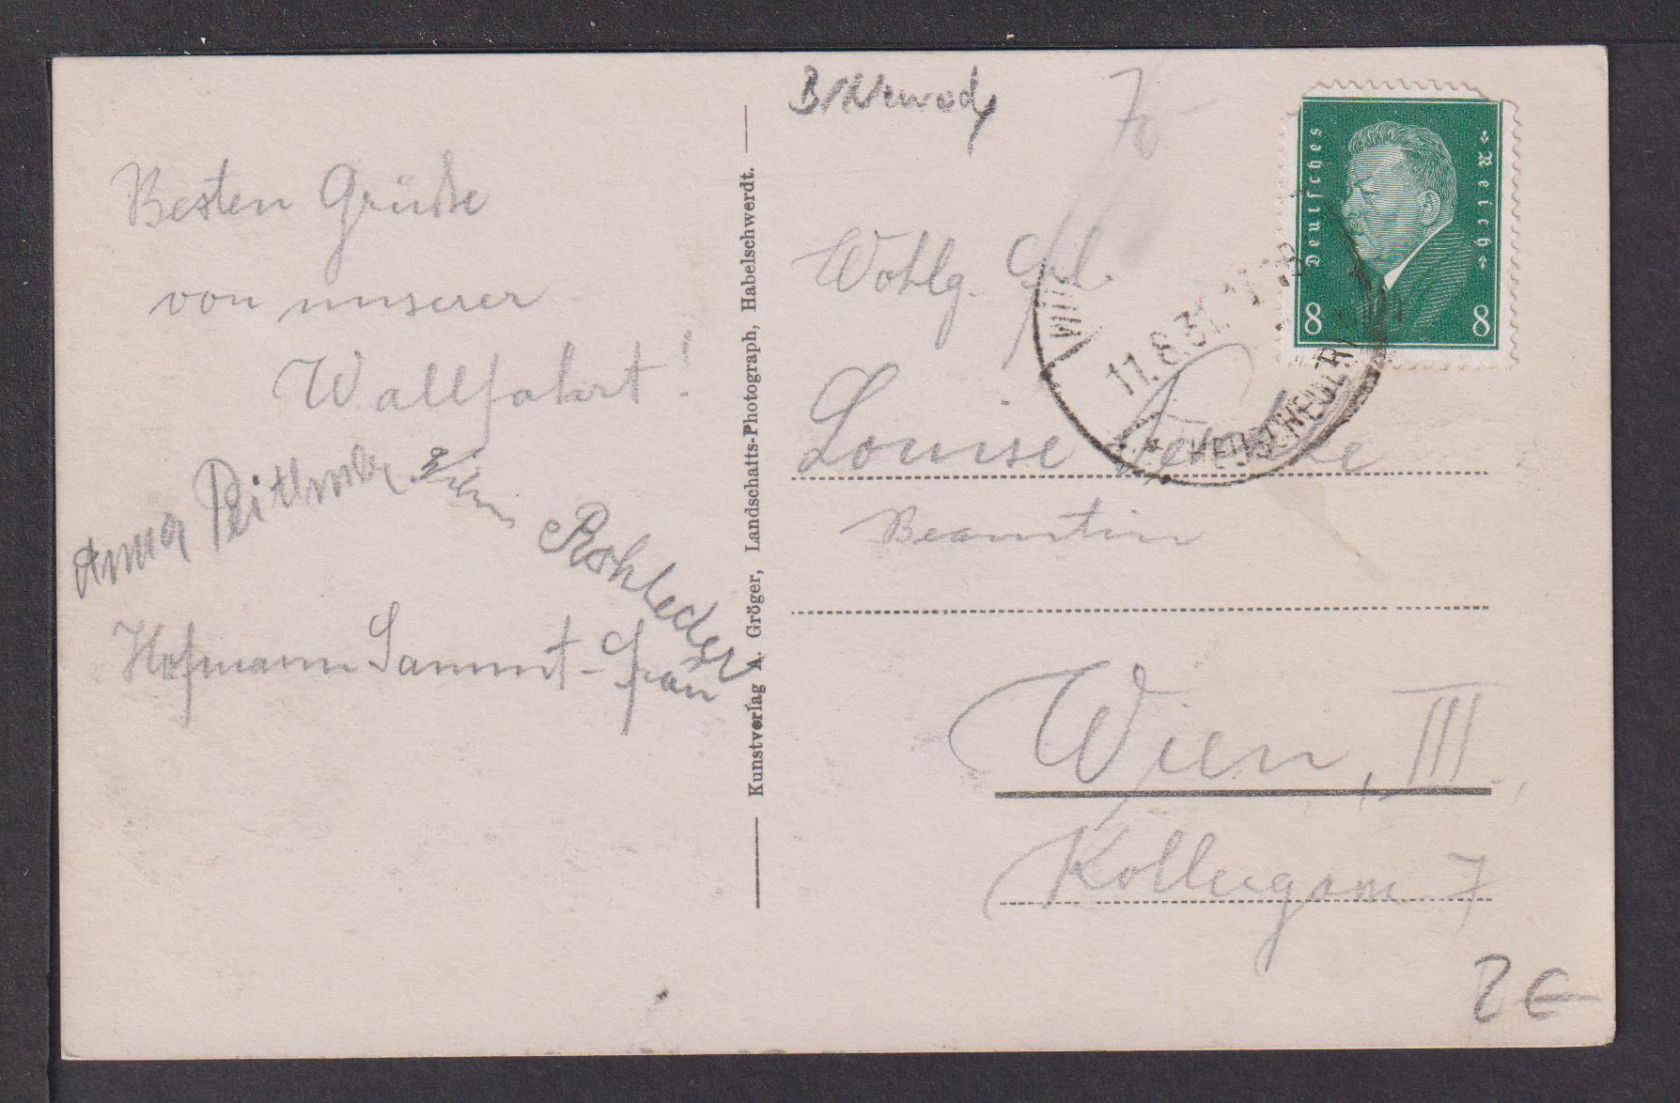 Besten Grüße
von unserer
Wallfahrt!
Anna
Rohleder
Hofmann Sammt-Frau
Kunstverlag A. Gröger, Landschafts-Photograph, Habelschwerdt.
70
Wohlg. Frl.
Louise
Beamtin
Wien, III.
7
2 €
Deutsches Reich
8 8
11.8.31.